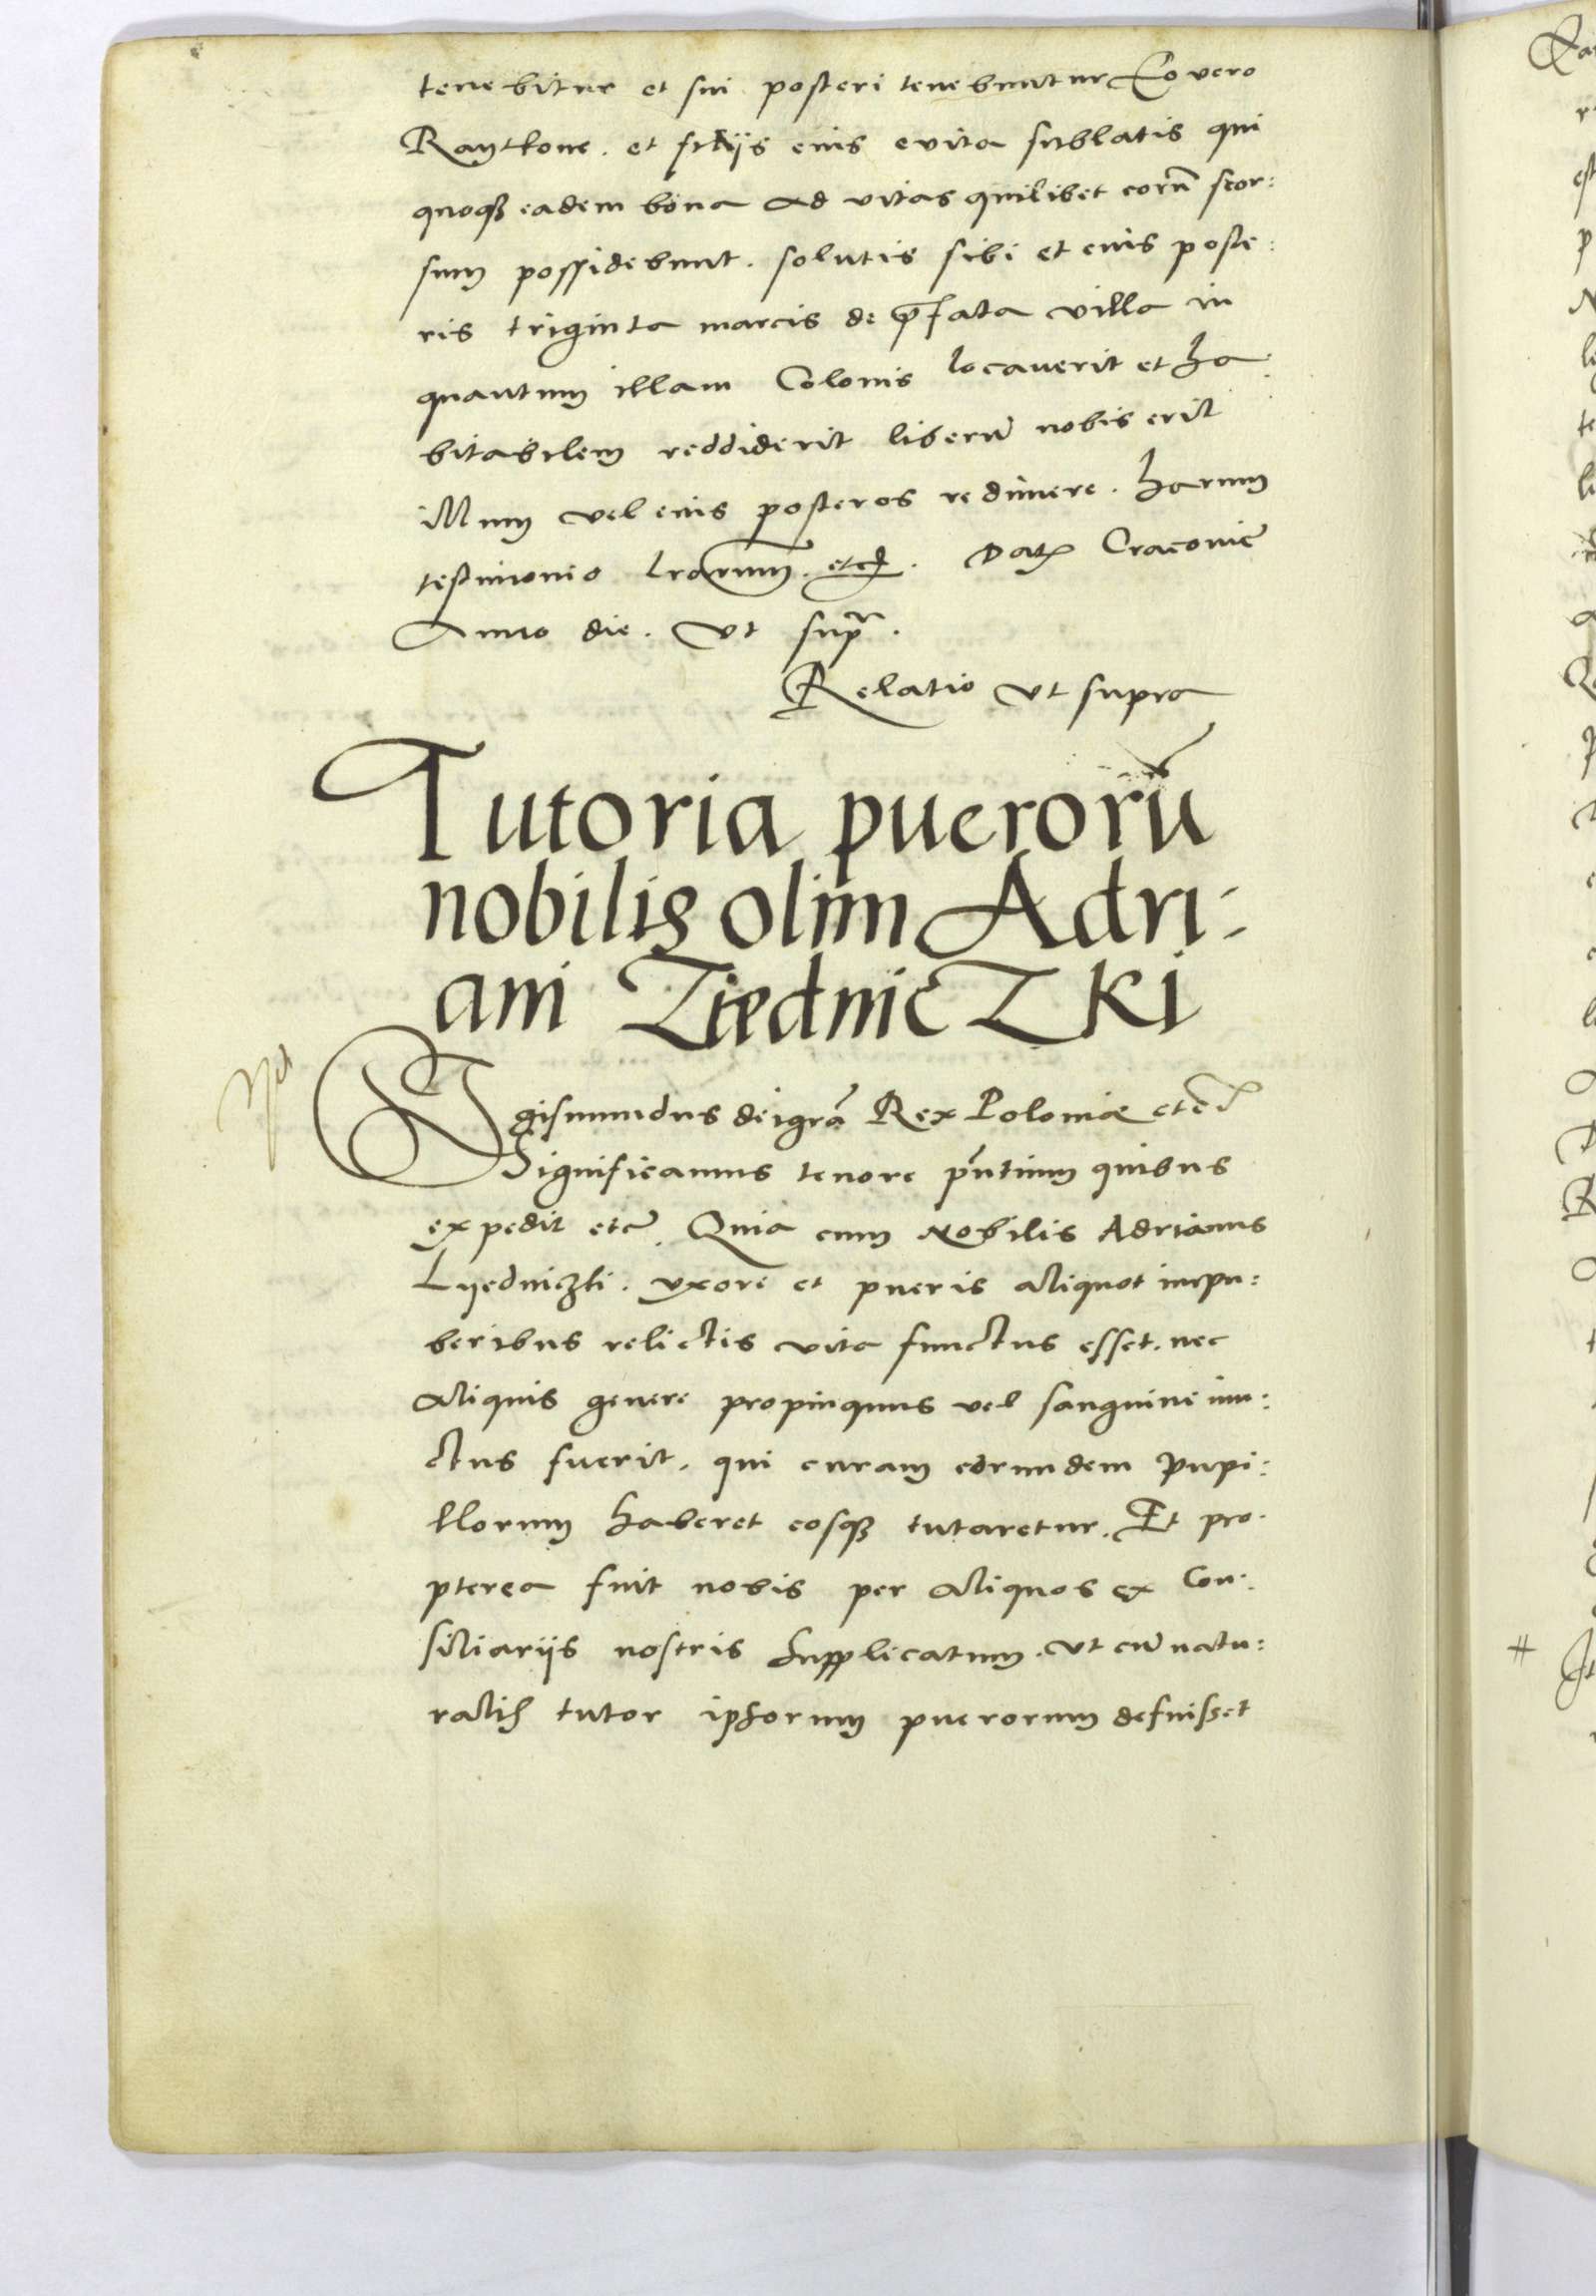 tenebitur et sui posteri tenebuntur Eo vero
Raythone. et filijs eius e vita sublatis qui
quoqꝫ eadem bona ad vitas quilibet eorũ seor:
sum possidebunt. solutis sibi et eius poste:
ris triginta marcis de p̃fata villa in
quantum illam Colonis locauerit et ha:
bitabilem reddiderit liberũ nobis erit
illum vel eius posteros redimere. harum
testimonio lr̃arum. etc̃. Dat Cracouie
Anno die. vt supr̃a.
Relatio vt supra
Tutoria puerorũ
nobilis olim Adri-
ani Liedniczki
Sigismundus dei gr̃a Rex Poloniæ etc̃
Significamus tenore pñtium quibus
expedit etc̃. Quia cum Nobilis Adrianus
Lyedniczki. vxore et pueris aliquot impu:
beribus relictis vita functus esset. nec
aliquis genere propinquus vel sanguine iun:
ctus fuerit. qui curam eorundem pupi:
llorum haberet eosqꝫ tutaretur. Et pro.
pterea fuit nobis per aliquos ex Con:
siliarijs nostris supplicatum. vt cũ natu:
ralis tutor ipsorum puerorum defuisset